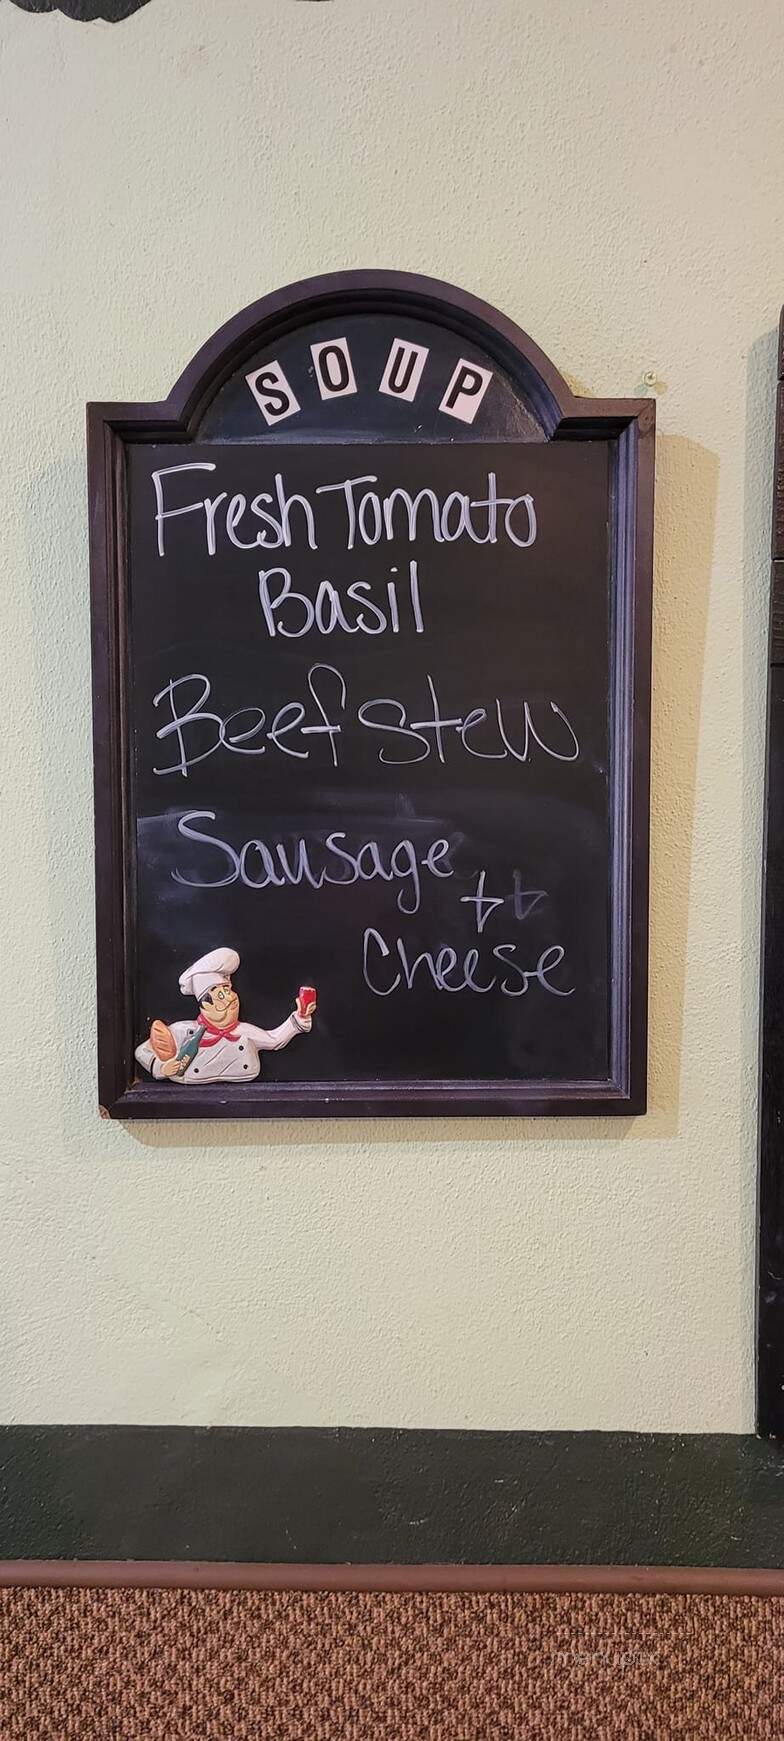 SOUP
Fresh Tomato
Basil
Beef Stew
Sausage
+
Cheese